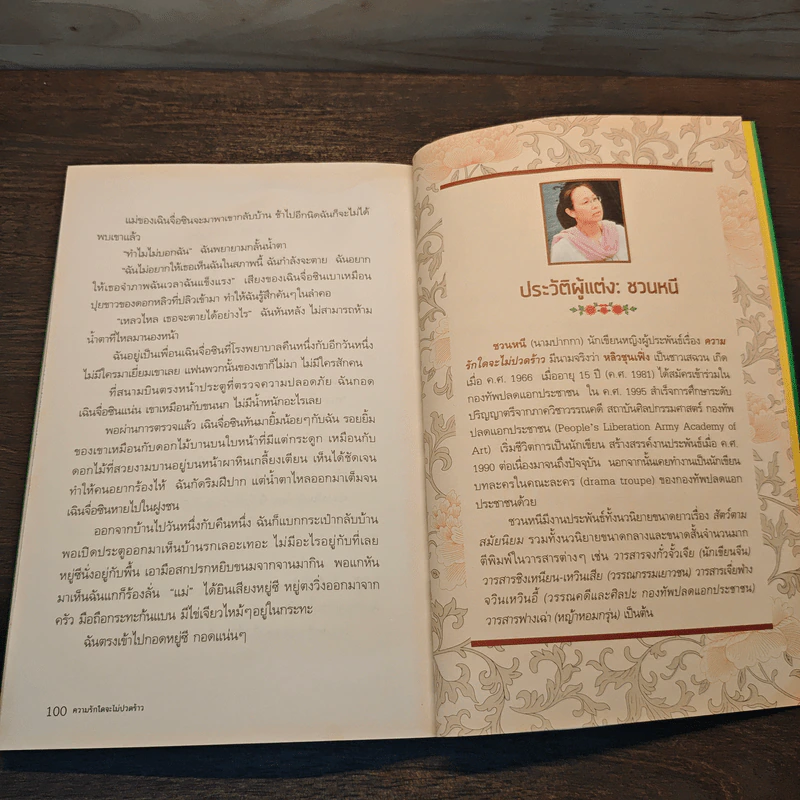 แม่ของเฉินจื่อซินจะมาพาเขากลับบ้าน ช้าไปอีกนิดฉันก็จะไม่ได้
พบเขาแล้ว
"ทำไมไม่บอกฉัน" ฉันพยายามกลั้นน้ำตา
"ฉันไม่อยากให้เธอเห็นฉันในสภาพนี้ ฉันกำลังจะตาย ฉันอยาก
ให้เธอจำภาพฉันเวลาฉันแข็งแรง" เสียงของเฉินจื่อซินเบาเหมือน
ปุยขาวของดอกหลิวที่ปลิวเข้ามา ทำให้ฉันรู้สึกคันๆในลำคอ
"เหลวไหล เธอจะตายได้อย่างไร" ฉันหันหลัง ไม่สามารถห้าม
น้ำตาที่ไหลมานองหน้า
ฉันอยู่เป็นเพื่อนเฉินจื่อซินที่โรงพยาบาลคืนหนึ่งกับอีกวันหนึ่ง
ไม่มีใครมาเยี่ยมเขาเลย แฟนพวกนั้นของเขาก็ไม่มา ไม่มีใครสักคน
ที่สนามบินตรงหน้าประตูที่ตรวจความปลอดภัย ฉันกอด
เฉินจื่อซินแน่น เขาเหมือนกับขนนก ไม่มีน้ำหนักอะไรเลย
พอผ่านการตรวจแล้ว เฉินจื่อซินหันมายิ้มน้อยๆกับฉัน รอยยิ้ม
ของเขาเหมือนกับดอกไม้บานบนใบหน้าที่มีแต่กระดูก เหมือนกับ
ดอกไม้ที่สวยงามบานอยู่บนหน้าผาหินเกลี้ยงเตียน เห็นได้ชัดเจน
ทำให้คนอยากร้องไห้ ฉันกัดริมฝีปาก แต่น้ำตาไหลออกมาเต็มจน
เฉินจื่อซินหายไปในฝูงชน
ออกจากบ้านไปวันหนึ่งกับคืนหนึ่ง ฉันก็แบกกระเป๋ากลับบ้าน
พอเปิดประตูออกมาเห็นบ้านรกเลอะเทอะ ไม่มีอะไรอยู่กับที่เลย
หยู่ซีนั่งอยู่กับพื้น เอามือสกปรกหยิบขนมจากจานมากิน พอแกหัน
มาเห็นฉันแกก็ร้องลั่น "แม่" ได้ยินเสียงหยู่ซี หยู่ตงวิ่งออกมาจาก
ครัว มือถือกระทะก้นแบน มีไข่เจียวไหม้ๆอยู่ในกระทะ
ฉันตรงเข้าไปกอดหยู่ซี กอดแน่นๆ
100 ความรักใดจะไม่ปวดร้าว
ประวัติผู้แต่ง: ชวนหนี
ชวนหนี (นามปากกา) นักเขียนหญิงผู้ประพันธ์เรื่อง ความ
รักใดจะไม่ปวดร้าว มีนามจริงว่า หลิวชุนเฟิ่ง เป็นชาวเสฉวน เกิด
เมื่อ ค.ศ. 1966 เมื่ออายุ 15 ปี (ค.ศ. 1981) ได้สมัครเข้าร่วมใน
กองทัพปลดแอกประชาชน ใน ค.ศ. 1995 สำเร็จการศึกษาระดับ
ปริญญาตรีจากภาควิชาวรรณคดี สถาบันศิลปกรรมศาสตร์ กองทัพ
ปลดแอกประชาชน (People's Liberation Army Academy of
Art) เริ่มชีวิตการเป็นนักเขียน สร้างสรรค์งานประพันธ์เมื่อ ค.ศ.
1990 ต่อเนื่องมาจนถึงปัจจุบัน นอกจากนั้นเคยทำงานเป็นนักเขียน
บทละครในคณะละคร (drama troupe) ของกองทัพปลดแอก
ประชาชนด้วย
ชวนหนีมีงานประพันธ์ทั้งนวนิยายขนาดยาวเรื่อง สัตว์ตาม
สมัยนิยม รวมทั้งนวนิยายขนาดกลางและขนาดสั้นจำนวนมาก
ตีพิมพ์ในวารสารต่างๆ เช่น วารสารจงกั๋วจั้วเจีย (นักเขียนจีน)
วารสารชิงเหนียน-เหวินเสีย (วรรณกรรมเยาวชน) วารสารเจี่ยฟาง
จวินเหวินอี้ (วรรณคดีและศิลปะ กองทัพปลดแอกประชาชน)
วารสารฟางเฉ่า (หญ้าหอมกรุ่น) เป็นต้น